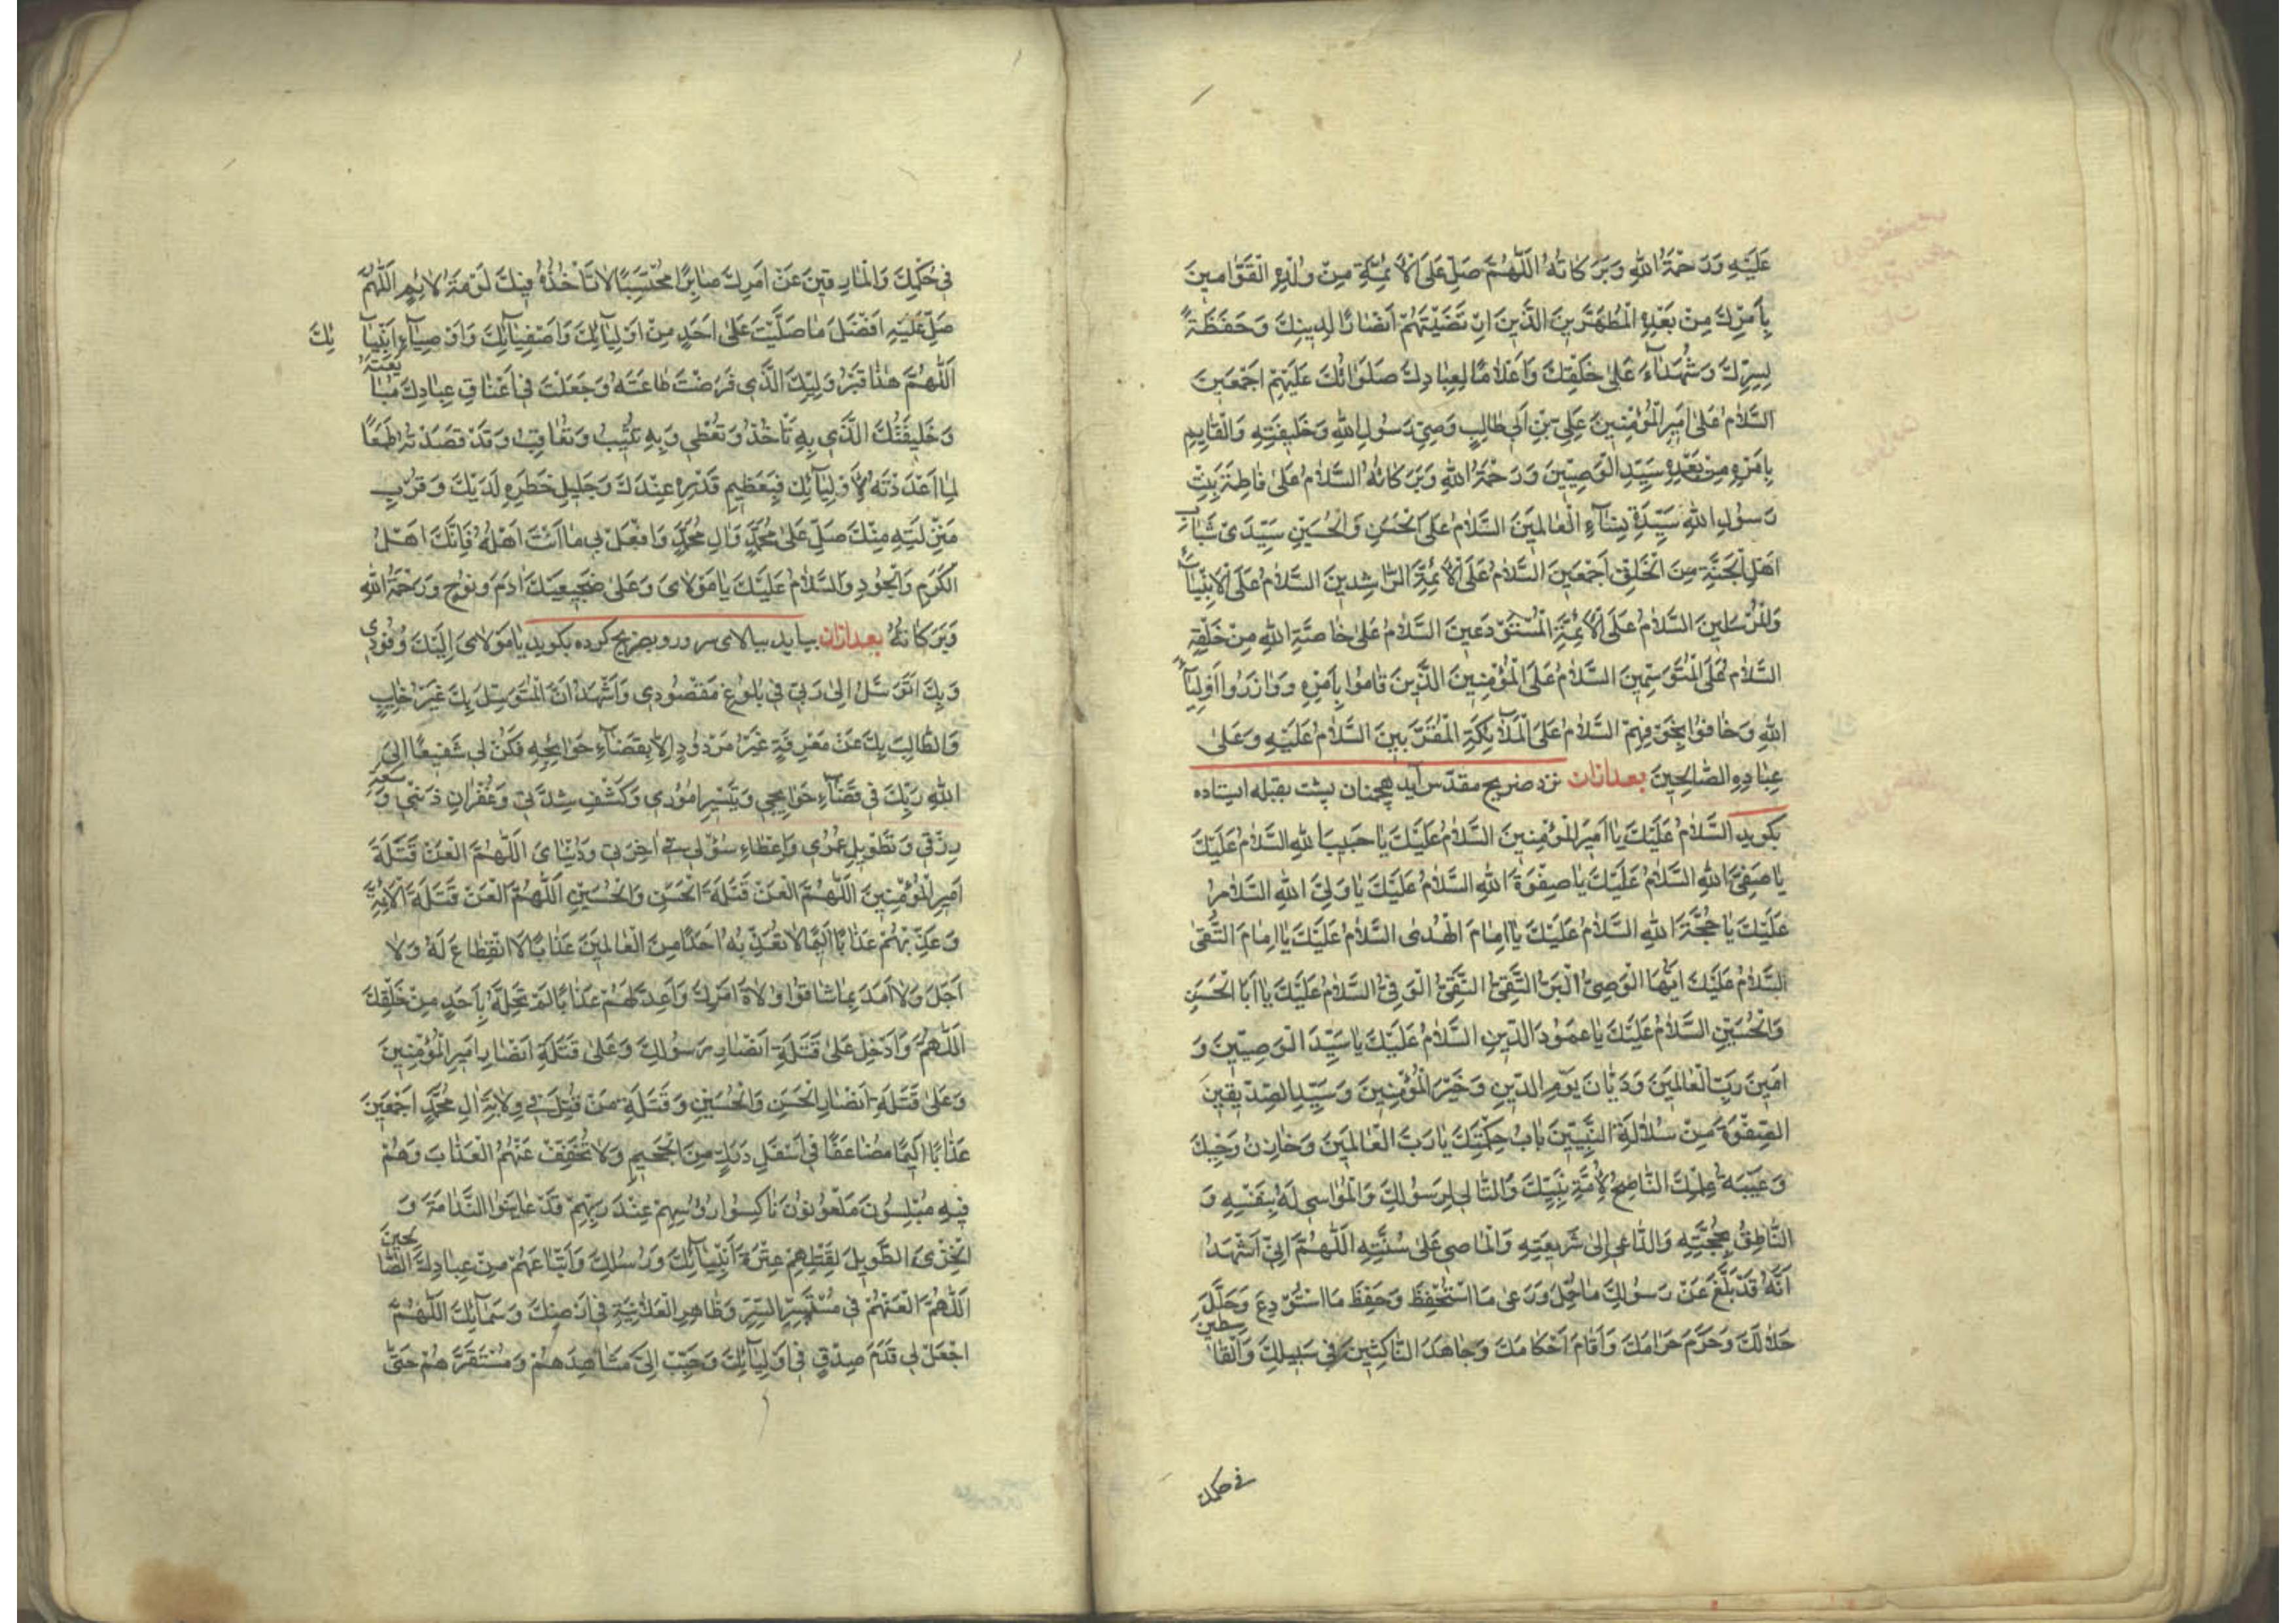 عَلَيْهِ وَرَحْمَةُ اللهِ وَبَرَكَاتُهُ اَللّٰهُمَّ صَلِّ عَلَى الْاَئِمَّةِ مِنْ وُلْدِهِ الْقَوَّامِينَ
بِاَمْرِكَ مِنْ بَعْدِهِ الْمُطَهَّرِينَ الَّذِينَ ارْتَضَيْتَهُمْ اَنْصَارًا لِدِينِكَ وَحَفَظَةً
لِسِرِّكَ وَشُهَدَاءَ عَلٰى خَلْقِكَ وَاَعْلَامًا لِعِبَادِكَ صَلَوَاتُكَ عَلَيْهِمْ اَجْمَعِينَ
السَّلَامُ عَلٰى اَمِيرِ الْمُؤْمِنِينَ عَلِيِّ بْنِ اَبِي طَالِبٍ وَصِيِّ رَسُولِ اللهِ وَخَلِيفَتِهِ وَالْقَائِمِ
بِاَمْرِهِ مِنْ بَعْدِهِ سَيِّدِ الْوَصِيِّينَ وَرَحْمَةُ اللهِ وَبَرَكَاتُهُ السَّلَامُ عَلٰى فَاطِمَةَ بِنْتِ
رَسُولِ اللهِ سَيِّدَةِ نِسَاءِ الْعَالَمِينَ السَّلَامُ عَلَى الْحَسَنِ وَالْحُسَيْنِ سَيِّدَيْ شَبَابِ
اَهْلِ الْجَنَّةِ مِنَ الْخَلْقِ اَجْمَعِينَ السَّلَامُ عَلَى الْاَئِمَّةِ الرَّاشِدِينَ السَّلَامُ عَلَى الْاَنْبِيَاءِ
وَالْمُرْسَلِينَ السَّلَامُ عَلَى الْاَئِمَّةِ الْمُسْتَوْدَعِينَ السَّلَامُ عَلٰى خَاصَّةِ اللهِ مِنْ خَلْقِهِ
السَّلَامُ عَلَى الْمُتَوَسِّمِينَ السَّلَامُ عَلَى الْمُؤْمِنِينَ الَّذِينَ قَامُوا بِاَمْرِهِ وَوَازَرُوا اَوْلِيَاءَ
اللهِ وَخَافُوا بِخَوْفِهِمْ السَّلَامُ عَلَى الْمَلَائِكَةِ الْمُقَرَّبِينَ السَّلَامُ عَلَيْهِ وَعَلٰى
عِبَادِهِ الصَّالِحِينَ بعد ازان نزد ضریح مقدس آید همچنان پشت بقبله ایستاده
بکوید السَّلَامُ عَلَيْكَ يَا اَمِيرَ الْمُؤْمِنِينَ السَّلَامُ عَلَيْكَ يَا حَبِيبَ اللهِ السَّلَامُ عَلَيْكَ
يَا صَفِيَّ اللهِ السَّلَامُ عَلَيْكَ يَا صِفْوَةَ اللهِ السَّلَامُ عَلَيْكَ يَا وَلِيَّ اللهِ السَّلَامُ
عَلَيْكَ يَا حُجَّةَ اللهِ السَّلَامُ عَلَيْكَ يَا اِمَامَ الْهُدٰى السَّلَامُ عَلَيْكَ يَا اِمَامَ التُّقٰى
السَّلَامُ عَلَيْكَ اَيُّهَا الْوَصِيُّ الْبَرُّ التَّقِيُّ النَّقِيُّ الْوَفِيُّ السَّلَامُ عَلَيْكَ يَا اَبَا الْحَسَنِ
وَالْحُسَيْنِ السَّلَامُ عَلَيْكَ يَا عَمُودَ الدِّينِ السَّلَامُ عَلَيْكَ يَا سَيِّدَ الْوَصِيِّينَ وَ
اَمِينَ رَبِّ الْعَالَمِينَ وَدَيَّانَ يَوْمِ الدِّينِ وَخَيْرَ الْمُؤْمِنِينَ وَسَيِّدَ الصِّدِّيقِينَ
الصِّفْوَةَ مِنْ سُلَالَةِ النَّبِيِّينَ بَابُ حِكْمَتِكَ يَا رَبَّ الْعَالَمِينَ وَخَازِنُ وَحْيِكَ
وَعَيْبَةُ عِلْمِكَ النَّاصِحُ لِاُمَّةِ نَبِيِّكَ وَالتَّالِي لِرَسُولِكَ وَالْمُوَاسِي لَهُ بِنَفْسِهِ وَ
النَّاطِقُ بِحُجَّتِهِ وَالدَّاعِي اِلٰى شَرِيعَتِهِ وَالْمَاضِي عَلٰى سُنَّتِهِ اَللّٰهُمَّ اِنِّي اَشْهَدُ
اَنَّهُ قَدْ بَلَّغَ عَنْ رَسُولِكَ مَا حُمِّلَ وَرَعٰى مَا اسْتُحْفِظَ وَحَفِظَ مَا اسْتُودِعَ وَحَلَّلَ
حَلَالَكَ وَحَرَّمَ حَرَامَكَ وَاَقَامَ اَحْكَامَكَ وَجَاهَدَ النَّاكِثِينَ فِي سَبِيلِكَ وَالْقَاسِطِينَ
فی حکمک
فِي حُكْمِكَ وَالْمَارِقِينَ عَنْ اَمْرِكَ صَابِرًا مُحْتَسِبًا لَا تَأْخُذُهُ فِيكَ لَوْمَةُ لَائِمٍ اَللّٰهُمَّ
صَلِّ عَلَيْهِ اَفْضَلَ مَا صَلَّيْتَ عَلٰى اَحَدٍ مِنْ اَوْلِيَائِكَ وَاَصْفِيَائِكَ وَاَوْصِيَاءِ اَنْبِيَائِكَ
اَللّٰهُمَّ هٰذَا قَبْرُ وَلِيِّكَ الَّذِي فَرَضْتَ طَاعَتَهُ وَجَعَلْتَ فِي اَعْنَاقِ عِبَادِكَ مُبَايَعَتَهُ
وَخَلِيفَتُكَ الَّذِي بِهِ تَأْخُذُ وَتُعْطِي وَبِهِ تُثِيبُ وَتُعَاقِبُ وَقَدْ قَصَدْتُهُ طَمَعًا
لِمَا اَعْدَدْتَهُ لِاَوْلِيَائِكَ فَبِعَظِيمِ قَدْرِهِ عِنْدَكَ وَجَلِيلِ خَطَرِهِ لَدَيْكَ وَقُرْبِ
مَنْزِلَتِهِ مِنْكَ صَلِّ عَلٰى مُحَمَّدٍ وَاٰلِ مُحَمَّدٍ وَافْعَلْ بِي مَا اَنْتَ اَهْلُهُ فَاِنَّكَ اَهْلُ
الْكَرَمِ وَالْجُودِ وَالسَّلَامُ عَلَيْكَ يَا مَوْلَايَ وَعَلٰى ضَجِيعَيْكَ اٰدَمَ وَنُوحٍ وَرَحْمَةُ اللهِ
وَبَرَكَاتُهُ بعد ازان بیاید ببالای سر و رو بضریح کرده بکوید يَا مَوْلَايَ اِلَيْكَ وُفُودِي
وَبِكَ اَتَوَسَّلُ اِلٰى رَبِّي فِي بُلُوغِ مَقْصُودِي وَاَشْهَدُ اَنَّ الْمُتَوَسِّلَ بِكَ غَيْرُ خَائِبٍ
وَالطَّالِبَ بِكَ عَنْ مَعْرِفَةٍ غَيْرُ مَرْدُودٍ اِلَّا بِقَضَاءِ حَوَائِجِهِ فَكُنْ لِي شَفِيعًا اِلَى
اللهِ رَبِّكَ فِي قَضَاءِ حَوَائِجِي وَتَيْسِيرِ اُمُورِي وَكَشْفِ شِدَّتِي وَغُفْرَانِ ذَنْبِي وَسَعَةِ
رِزْقِي وَتَطْوِيلِ عُمْرِي وَاِعْطَاءِ سُؤْلِي فِي اٰخِرَتِي وَدُنْيَايَ اَللّٰهُمَّ الْعَنْ قَتَلَةَ
اَمِيرِ الْمُؤْمِنِينَ اَللّٰهُمَّ الْعَنْ قَتَلَةَ الْحَسَنِ وَالْحُسَيْنِ اَللّٰهُمَّ الْعَنْ قَتَلَةَ الْاَئِمَّةِ
وَعَذِّبْهُمْ عَذَابًا اَلِيمًا لَا تُعَذِّبُهُ اَحَدًا مِنَ الْعَالَمِينَ عَذَابًا لَا انْقِطَاعَ لَهُ وَلَا
اَجَلَ وَلَا اَمَدَ بِمَا شَاقُّوا وُلَاةَ اَمْرِكَ وَاَعِدَّ لَهُمْ عَذَابًا لَمْ تُحِلَّهُ بِاَحَدٍ مِنْ خَلْقِكَ
اَللّٰهُمَّ وَاَدْخِلْ عَلٰى قَتَلَةِ اَنْصَارِ رَسُولِكَ وَعَلٰى قَتَلَةِ اَنْصَارِ اَمِيرِ الْمُؤْمِنِينَ
وَعَلٰى قَتَلَةِ اَنْصَارِ الْحَسَنِ وَالْحُسَيْنِ وَقَتَلَةِ مَنْ قُتِلَ فِي وِلَايَةِ اٰلِ مُحَمَّدٍ اَجْمَعِينَ
عَذَابًا اَلِيمًا مُضَاعَفًا فِي اَسْفَلِ دَرَكٍ مِنَ الْجَحِيمِ وَلَا تُخَفِّفْ عَنْهُمُ الْعَذَابَ وَهُمْ
فِيهِ مُبْلِسُونَ مَلْعُونُونَ نَاكِسُوا رُؤُسِهِمْ عِنْدَ رَبِّهِمْ قَدْ عَايَنُوا النَّدَامَةَ وَ
الْخِزْيَ الطَّوِيلَ لِقَتْلِهِمْ عِتْرَةَ اَنْبِيَائِكَ وَرُسُلِكَ وَاَتْبَاعَهُمْ مِنْ عِبَادِكَ الصَّالِحِينَ
اَللّٰهُمَّ الْعَنْهُمْ فِي مُسْتَسِرِّ السِّرِّ وَظَاهِرِ الْعَلَانِيَةِ فِي اَرْضِكَ وَسَمَائِكَ اَللّٰهُمَّ
اجْعَلْ لِي قَدَمَ صِدْقٍ فِي اَوْلِيَائِكَ وَحَبِّبْ اِلَيَّ مَشَاهِدَهُمْ وَمُسْتَقَرَّهُمْ حَتّٰى